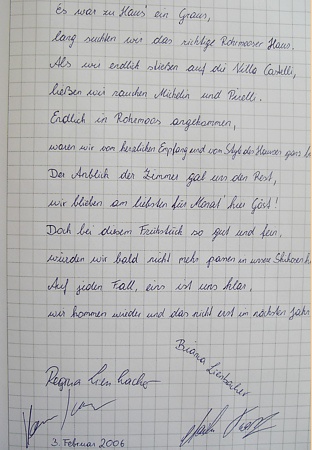 Es war zu Haus' ein Graus,
lang suchten wir das richtige Rohrmooser Haus.
Als wir endlich stießen auf die Villa Castelli,
ließen wir rauchen Michelin und Pirelli.
Endlich in Rohrmoos angekommen,
waren wir vom herzlichen Empfang und vom Style des Hauses ganz
Der Anblick der Zimmer gab uns den Rest,
wir blieben am liebsten für Monat' hier Gäst!
Doch bei diesem Frühstück so gut und fein,
würden wir bald nicht mehr passen in unsere
Auf jeden Fall, eins ist uns klar,
wir kommen wieder und das nicht erst im nächsten Jahr
Bianca
Regina
3. Februar 2006